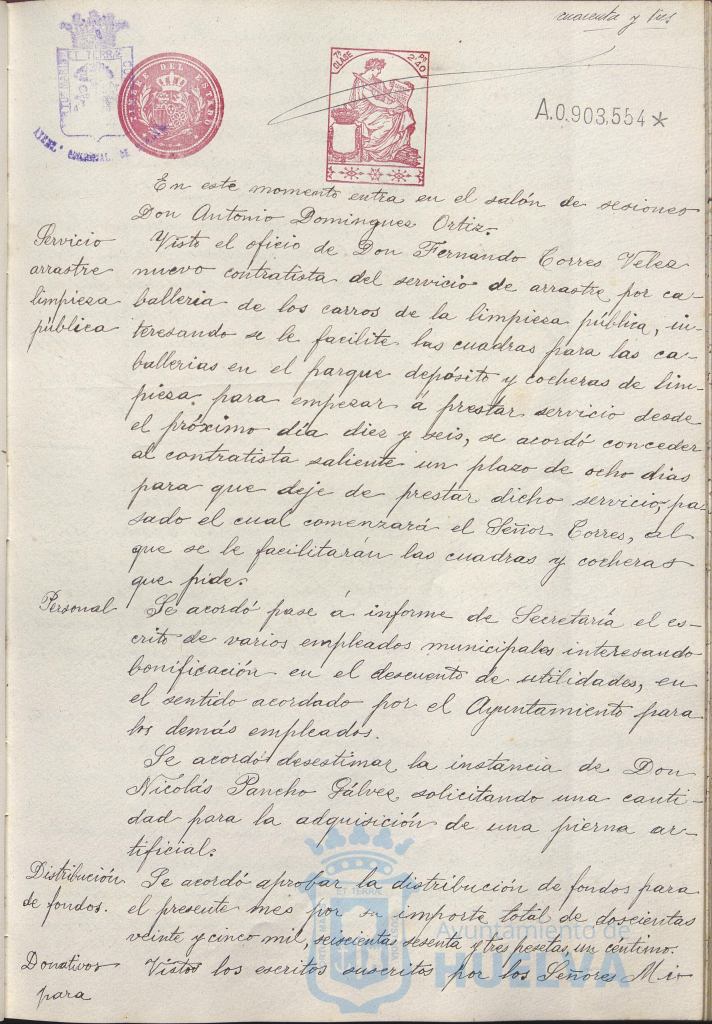 cuarenta y tres
TIMBRE DEL ESTADO
7ª CLASE Pts 2'40
A.0.903,554*
En este momento entra en el salón de sesiones
Don Antonio Domingues Ortiz.
Servicio
arrastre
limpiesa
pública
Visto el oficio de Don Fernando Torres Veles
nuevo contratista del servicio de arrastre por ca-
balleria de los carros de la limpiesa pública, in-
teresando se le facilite las cuadras para las ca-
ballerias en el parque depósito y cocheras de lim-
piesa, para empesar á prestar servicio desde
el próximo día diez y seis, se acordó conceder
al contratista saliente un plazo de ocho dias
para que deje de prestar dicho servicio, pa-
sado el cual comenzará el Señor Torres, al
que se le facilitarán las cuadras y cocheras
que pide.
Personal
Se acordó pase á informe de Secretaría el es-
crito de varios empleados municipales interesando
bonificación en el descuento de utilidades, en
el sentido acordado por el Ayuntamiento para
los demás empleados.
Se acordó desestimar la instancia de Don
Nicolás Pancho Gálvez solicitando una canti-
dad para la adquisición de una pierna ar-
tificial.
Distribución
de fondos.
Se acordó aprobar la distribución de fondos para
el presente mes por su importe total de doscientas
veinte y cinco mil, seiscientas sesenta y tres pesetas, un céntimo.
Donativos
para
Vistos los escritos suscritos por los Señores Mi-
Ayuntamiento de
HUELVA